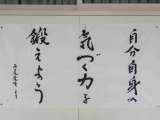 自分自身の
気づく力を
鍛えよう